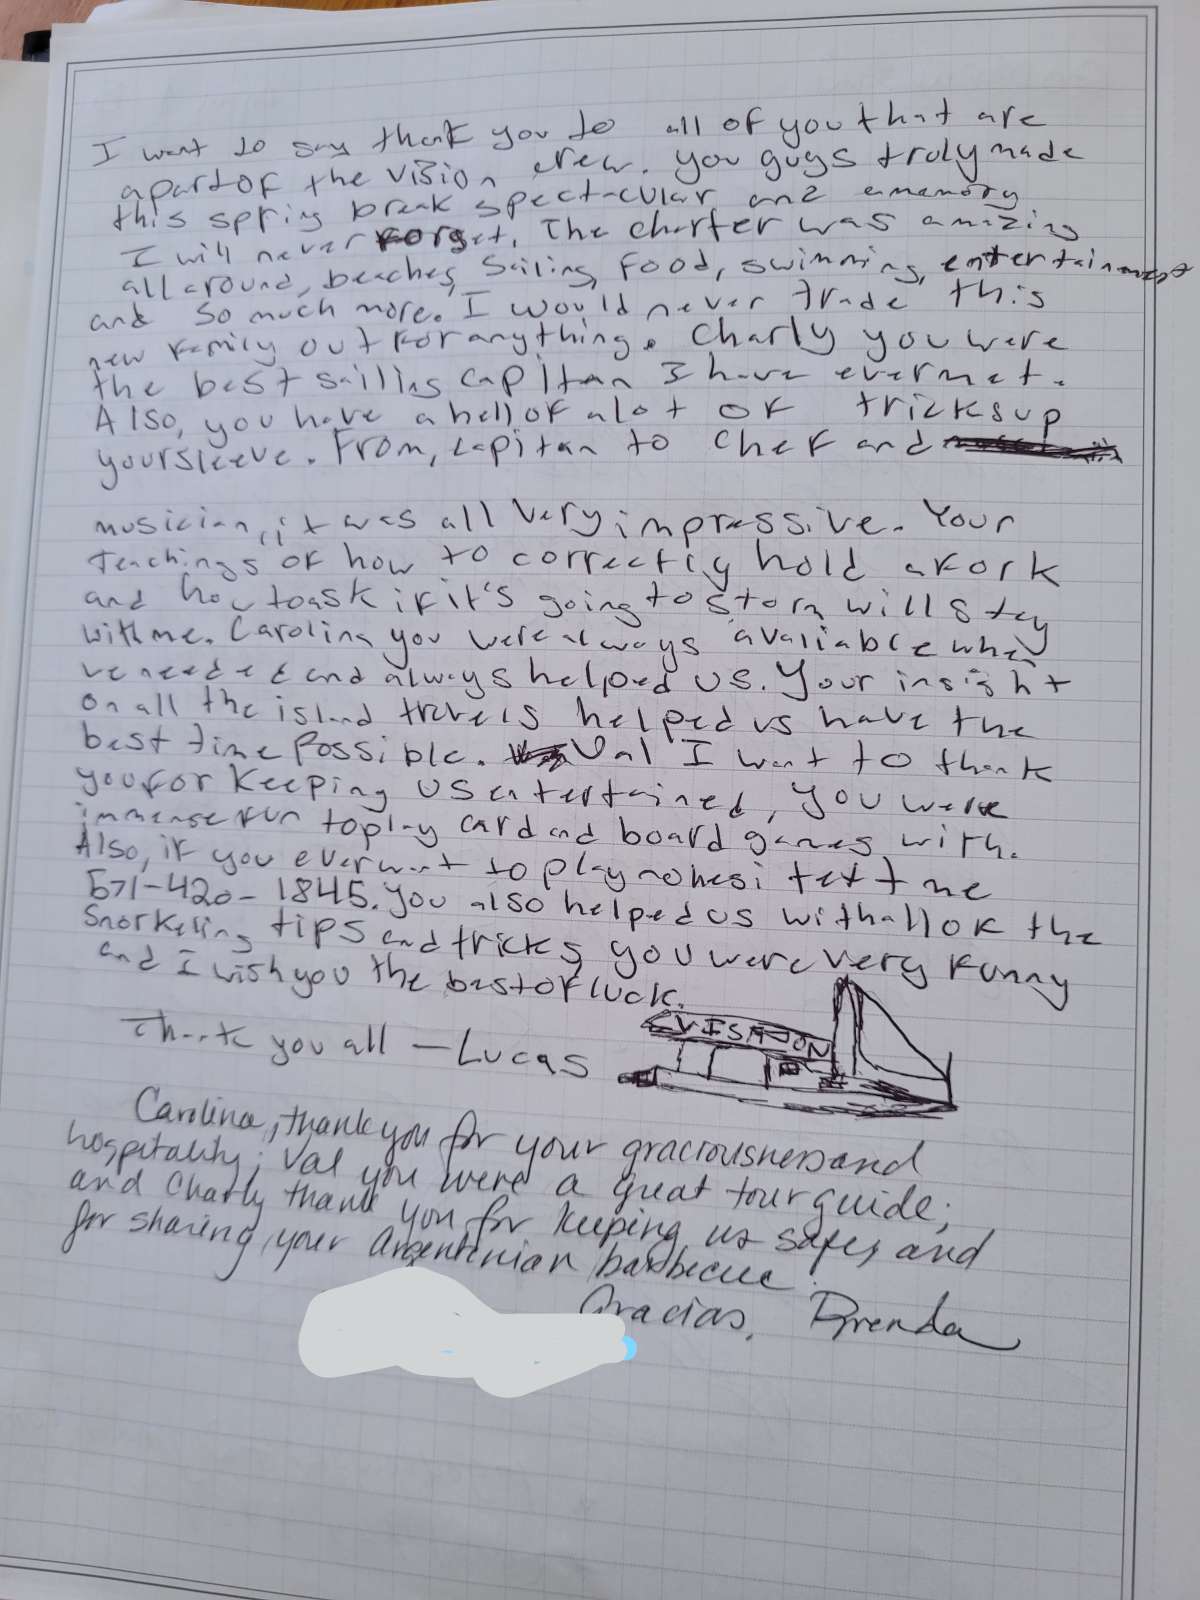 I want to say thank you to all of you that are
a part of the vision crew. you guys truly made
this spring break spectacular and a memory
I will never forget. The charter was amazing
all around, beaches, sailing, food, swimming, entertainment
and so much more. I would never trade this
new family out for anything. Charly you were
the best sailing capitan I have ever met.
Also, you have a hell of a lot of tricks up
your sleeve. From, capitan to chef and
musician, it was all very impressive. Your
teachings of how to correctly hold a fork
and how to ask if it's going to storm will stay
with me. Carolina you were always avaliable when
we needed and always helped us. Your insight
on all the island travels helped us have the
best time possible. Val I want to thank
you for keeping us entertained, you were
immense fun to play card and board games with.
Also, if you ever want to play text me
571-420-1845. You also helped us with all of the
snorkeling tips and tricks, you were very funny
and I wish you the best of luck.
Thank you all — Lucas
VISATION
Carolina, thank you for your graciousness and
hospitality; Val you were a great tour guide;
and Charly thank you for keeping us safe, and
for sharing your Argentinian barbecue.
Gracias, Brenda